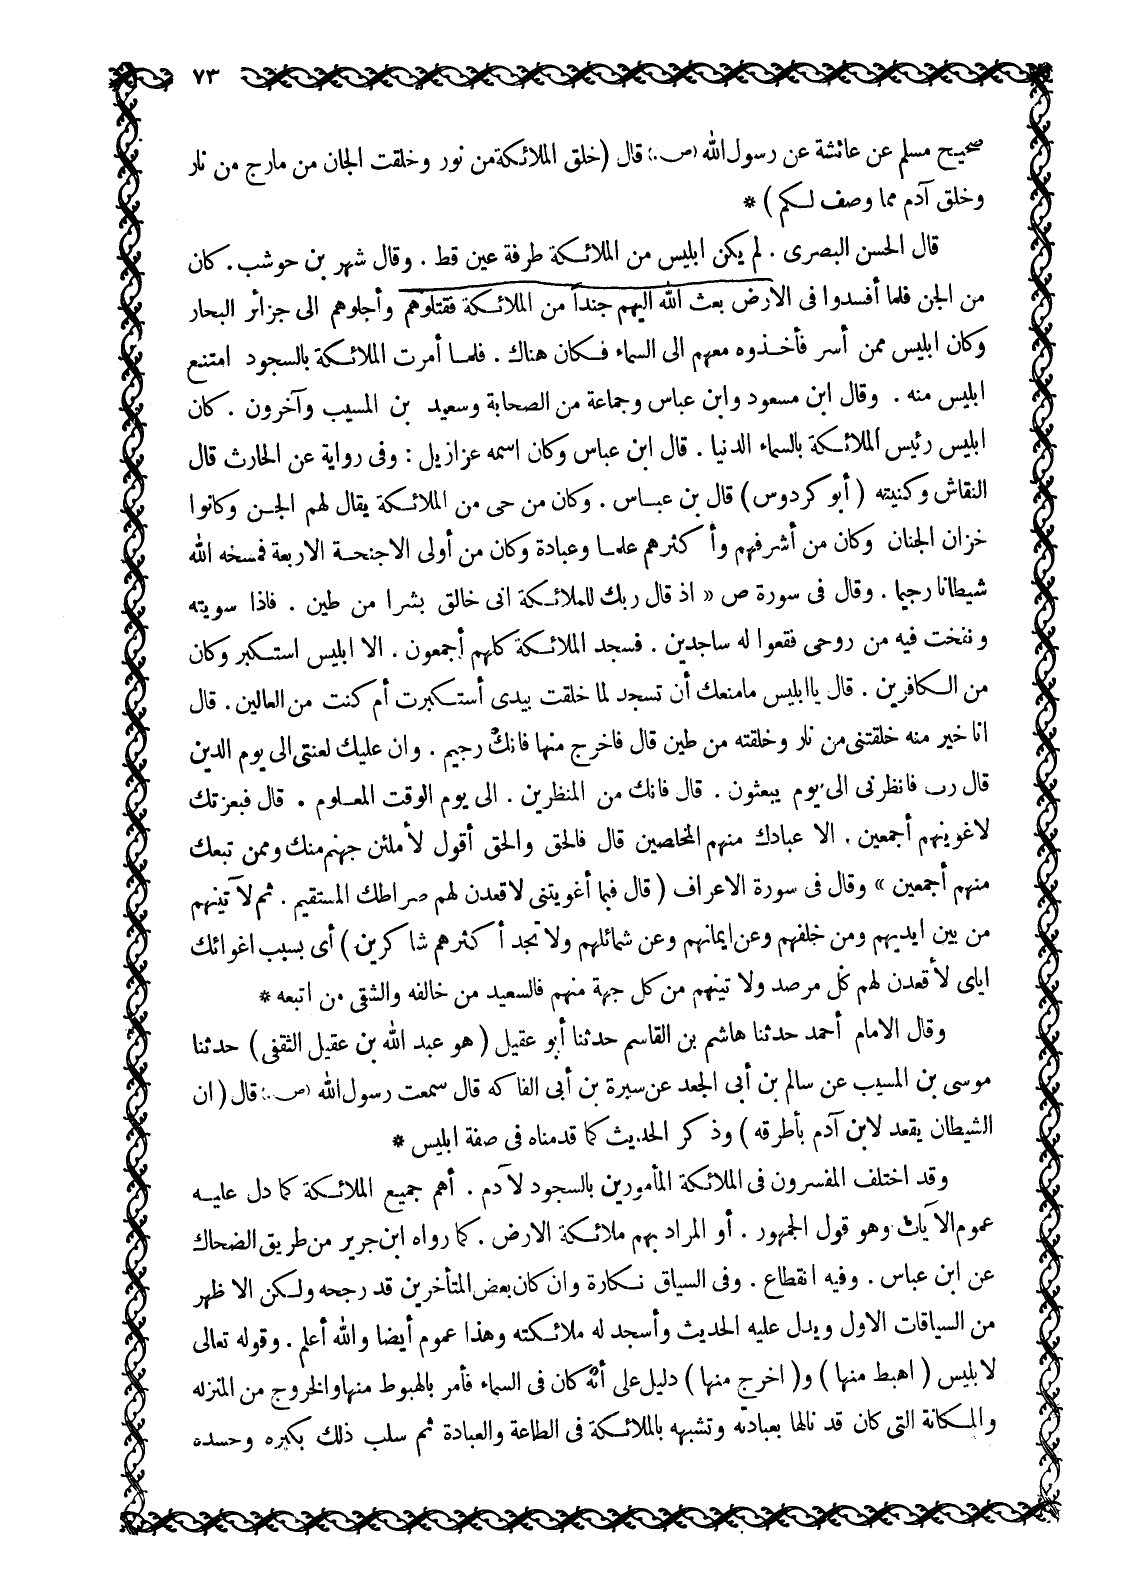 ٧٣
صحيح مسلم عن عائشة عن رسول الله (ص.) قال (خلق الملائكة من نور وخلقت الجان من مارج من نار
وخلق آدم مما وصف لكم) *
قال الحسن البصرى . لم يكن ابليس من الملائكة طرفة عين قط . وقال شهر بن حوشب . كان
من الجن فلما أفسدوا فى الارض بعث الله اليهم جنداً من الملائكة فقتلوهم وأجلوهم الى جزائر البحار
وكان ابليس ممن أسر فأخذوه معهم الى السماء فكان هناك . فلما أمرت الملائكة بالسجود امتنع
ابليس منه . وقال ابن مسعود وابن عباس وجماعة من الصحابة وسعيد بن المسيب وآخرون . كان
ابليس رئيس الملائكة بالسماء الدنيا . قال ابن عباس وكان اسمه عزازيل : وفى رواية عن الحارث قال
النقاش وكنيته (أبو كردوس) قال بن عباس . وكان من حى من الملائكة يقال لهم الجن وكانوا
خزان الجنان وكان من أشرفهم وأكثرهم علما وعبادة وكان من أولى الاجنحة الاربعة فمسخه الله
شيطانا رجيما . وقال فى سورة ص « اذ قال ربك للملائكة انى خالق بشرا من طين . فاذا سويته
ونفخت فيه من روحى فقعوا له ساجدين . فسجد الملائكة كلهم أجمعون . الا ابليس استكبر وكان
من الكافرين . قال يا ابليس مامنعك أن تسجد لما خلقت بيدى أستكبرت أم كنت من العالين . قال
انا خير منه خلقتنى من نار وخلقته من طين قال فاخرج منها فانك رجيم . وان عليك لعنتى الى يوم الدين
قال رب فانظرنى الى يوم يبعثون . قال فانك من المنظرين . الى يوم الوقت المعلوم . قال فبعزتك
لاغوينهم أجمعين . الا عبادك منهم المخلصين قال فالحق والحق أقول لأملئن جهنم منك وممن تبعك
منهم أجمعين » وقال فى سورة الاعراف ( قال فبما أغويتنى لاقعدن لهم صراطك المستقيم . ثم لآتينهم
من بين ايديهم ومن خلفهم وعن ايمانهم وعن شمائلهم ولا تجد أكثرهم شاكرين ) أى بسبب اغوائك
اياى لأقعدن لهم كل مرصد ولا تينهم من كل جهة منهم فالسعيد من خالفه والشقى من اتبعه *
وقال الامام أحمد حدثنا هاشم بن القاسم حدثنا أبو عقيل ( هو عبد الله بن عقيل الثقفى ) حدثنا
موسى بن المسيب عن سالم بن أبى الجعد عن سبرة بن أبى الفاكه قال سمعت رسول الله (ص.) قال ( ان
الشيطان يقعد لابن آدم بأطرقه ) وذكر الحديث كما قدمناه فى صفة ابليس *
وقد اختلف المفسرون فى الملائكة المأمورين بالسجود لآدم . أهم جميع الملائكة كما دل عليه
عموم الآيات وهو قول الجمهور . أو المراد بهم ملائكة الارض . كما رواه ابن جرير من طريق الضحاك
عن ابن عباس . وفيه انقطاع . وفى السياق نكارة وان كان بعض المتأخرين قد رجحه ولكن الاظهر
من السياقات الاول ويدل عليه الحديث وأسجد له ملائكته وهذا عموم أيضا والله أعلم . وقوله تعالى
لابليس ( اهبط منها ) و( اخرج منها ) دليل على أنه كان فى السماء فأمر بالهبوط منها والخروج من المنزله
والمكانة التى كان قد نالها بعبادته وتشبهه بالملائكة فى الطاعة والعبادة ثم سلب ذلك بكبره وحسده